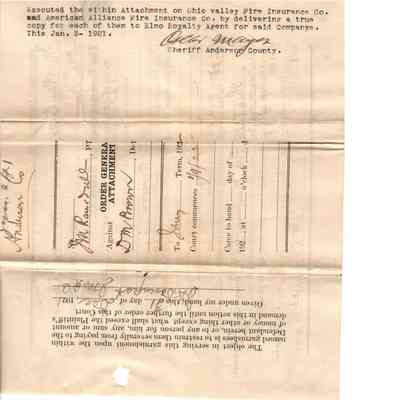 Executed the within Attachment on Ohio valley Fire Insurance Co.
and American Alliance Fire Insurance Co. by delivering a true
copy for each of them to Elmo Royalty Agent for said Companys.
This Jan. 3- 1921.
Sheriff Anderson County.
Anderson Co
ORDER GENERAL
ATTACHMENT
Against
D M Brown
To
Term, 192
Court commences
Came to hand day of
192 at o'clock
The object in serving this garnishment upon the within
named garnishees is to restrain them severally from paying to the
Defendant herein, or to any person for him, any sum or amount
of money or other thing except what shall exceed the Plaintiff's
demand in this action until the further order of this Court
Given under my hand, this day of 192